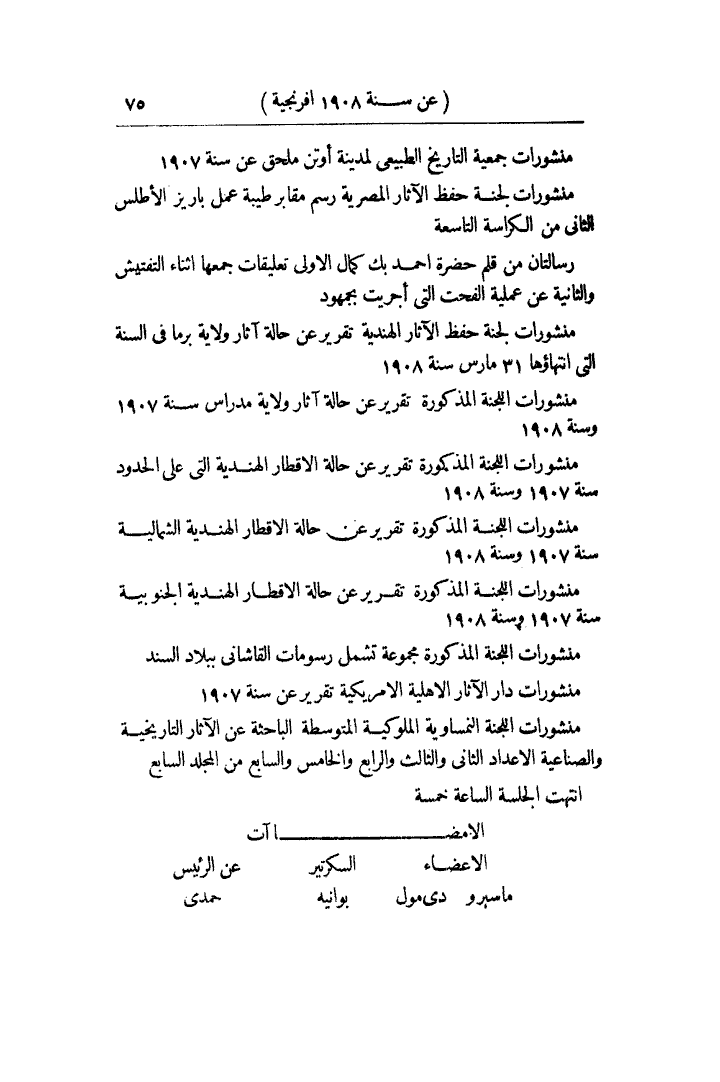 (عن سنة ١٩٠٨ افرنجية) ٧٥
منشورات جمعية التاريخ الطبيعى لمدينة أوتن ملحق عن سنة ١٩٠٧
منشورات لجنة حفظ الآثار المصرية رسم مقابر طيبة عمل باريز الأطلس
الثانى من الكراسة التاسعة
رسالتان من قلم حضرة احمد بك كمال الاولى تعليقات جمعها اثناء التفتيش
والثانية عن عملية الفحت التى أجريت بجمهود
منشورات لجنة حفظ الآثار الهندية تقرير عن حالة آثار ولاية برما فى السنة
التى انتهاؤها ٣١ مارس سنة ١٩٠٨
منشورات اللجنة المذكورة تقرير عن حالة آثار ولاية مدراس سنة ١٩٠٧
وسنة ١٩٠٨
منشورات اللجنة المذكورة تقرير عن حالة الاقطار الهندية التى على الحدود
سنة ١٩٠٧ وسنة ١٩٠٨
منشورات اللجنة المذكورة تقرير عن حالة الاقطار الهندية الشمالية
سنة ١٩٠٧ وسنة ١٩٠٨
منشورات اللجنة المذكورة تقرير عن حالة الاقطار الهندية الجنوبية
سنة ١٩٠٧ وسنة ١٩٠٨
منشورات اللجنة المذكورة مجموعة تشمل رسومات القاشانى ببلاد السند
منشورات دار الآثار الاهلية الامريكية تقرير عن سنة ١٩٠٧
منشورات اللجنة النمساوية الملوكية المتوسطة الباحثة عن الآثار التاريخية
والصناعية الاعداد الثانى والثالث والرابع والخامس والسابع من المجلد السابع
انتهت الجلسة الساعة خمسة
الامضاآت
الاعضاء السكرتير عن الرئيس
ماسپرو دى مول بوانيه حمدى